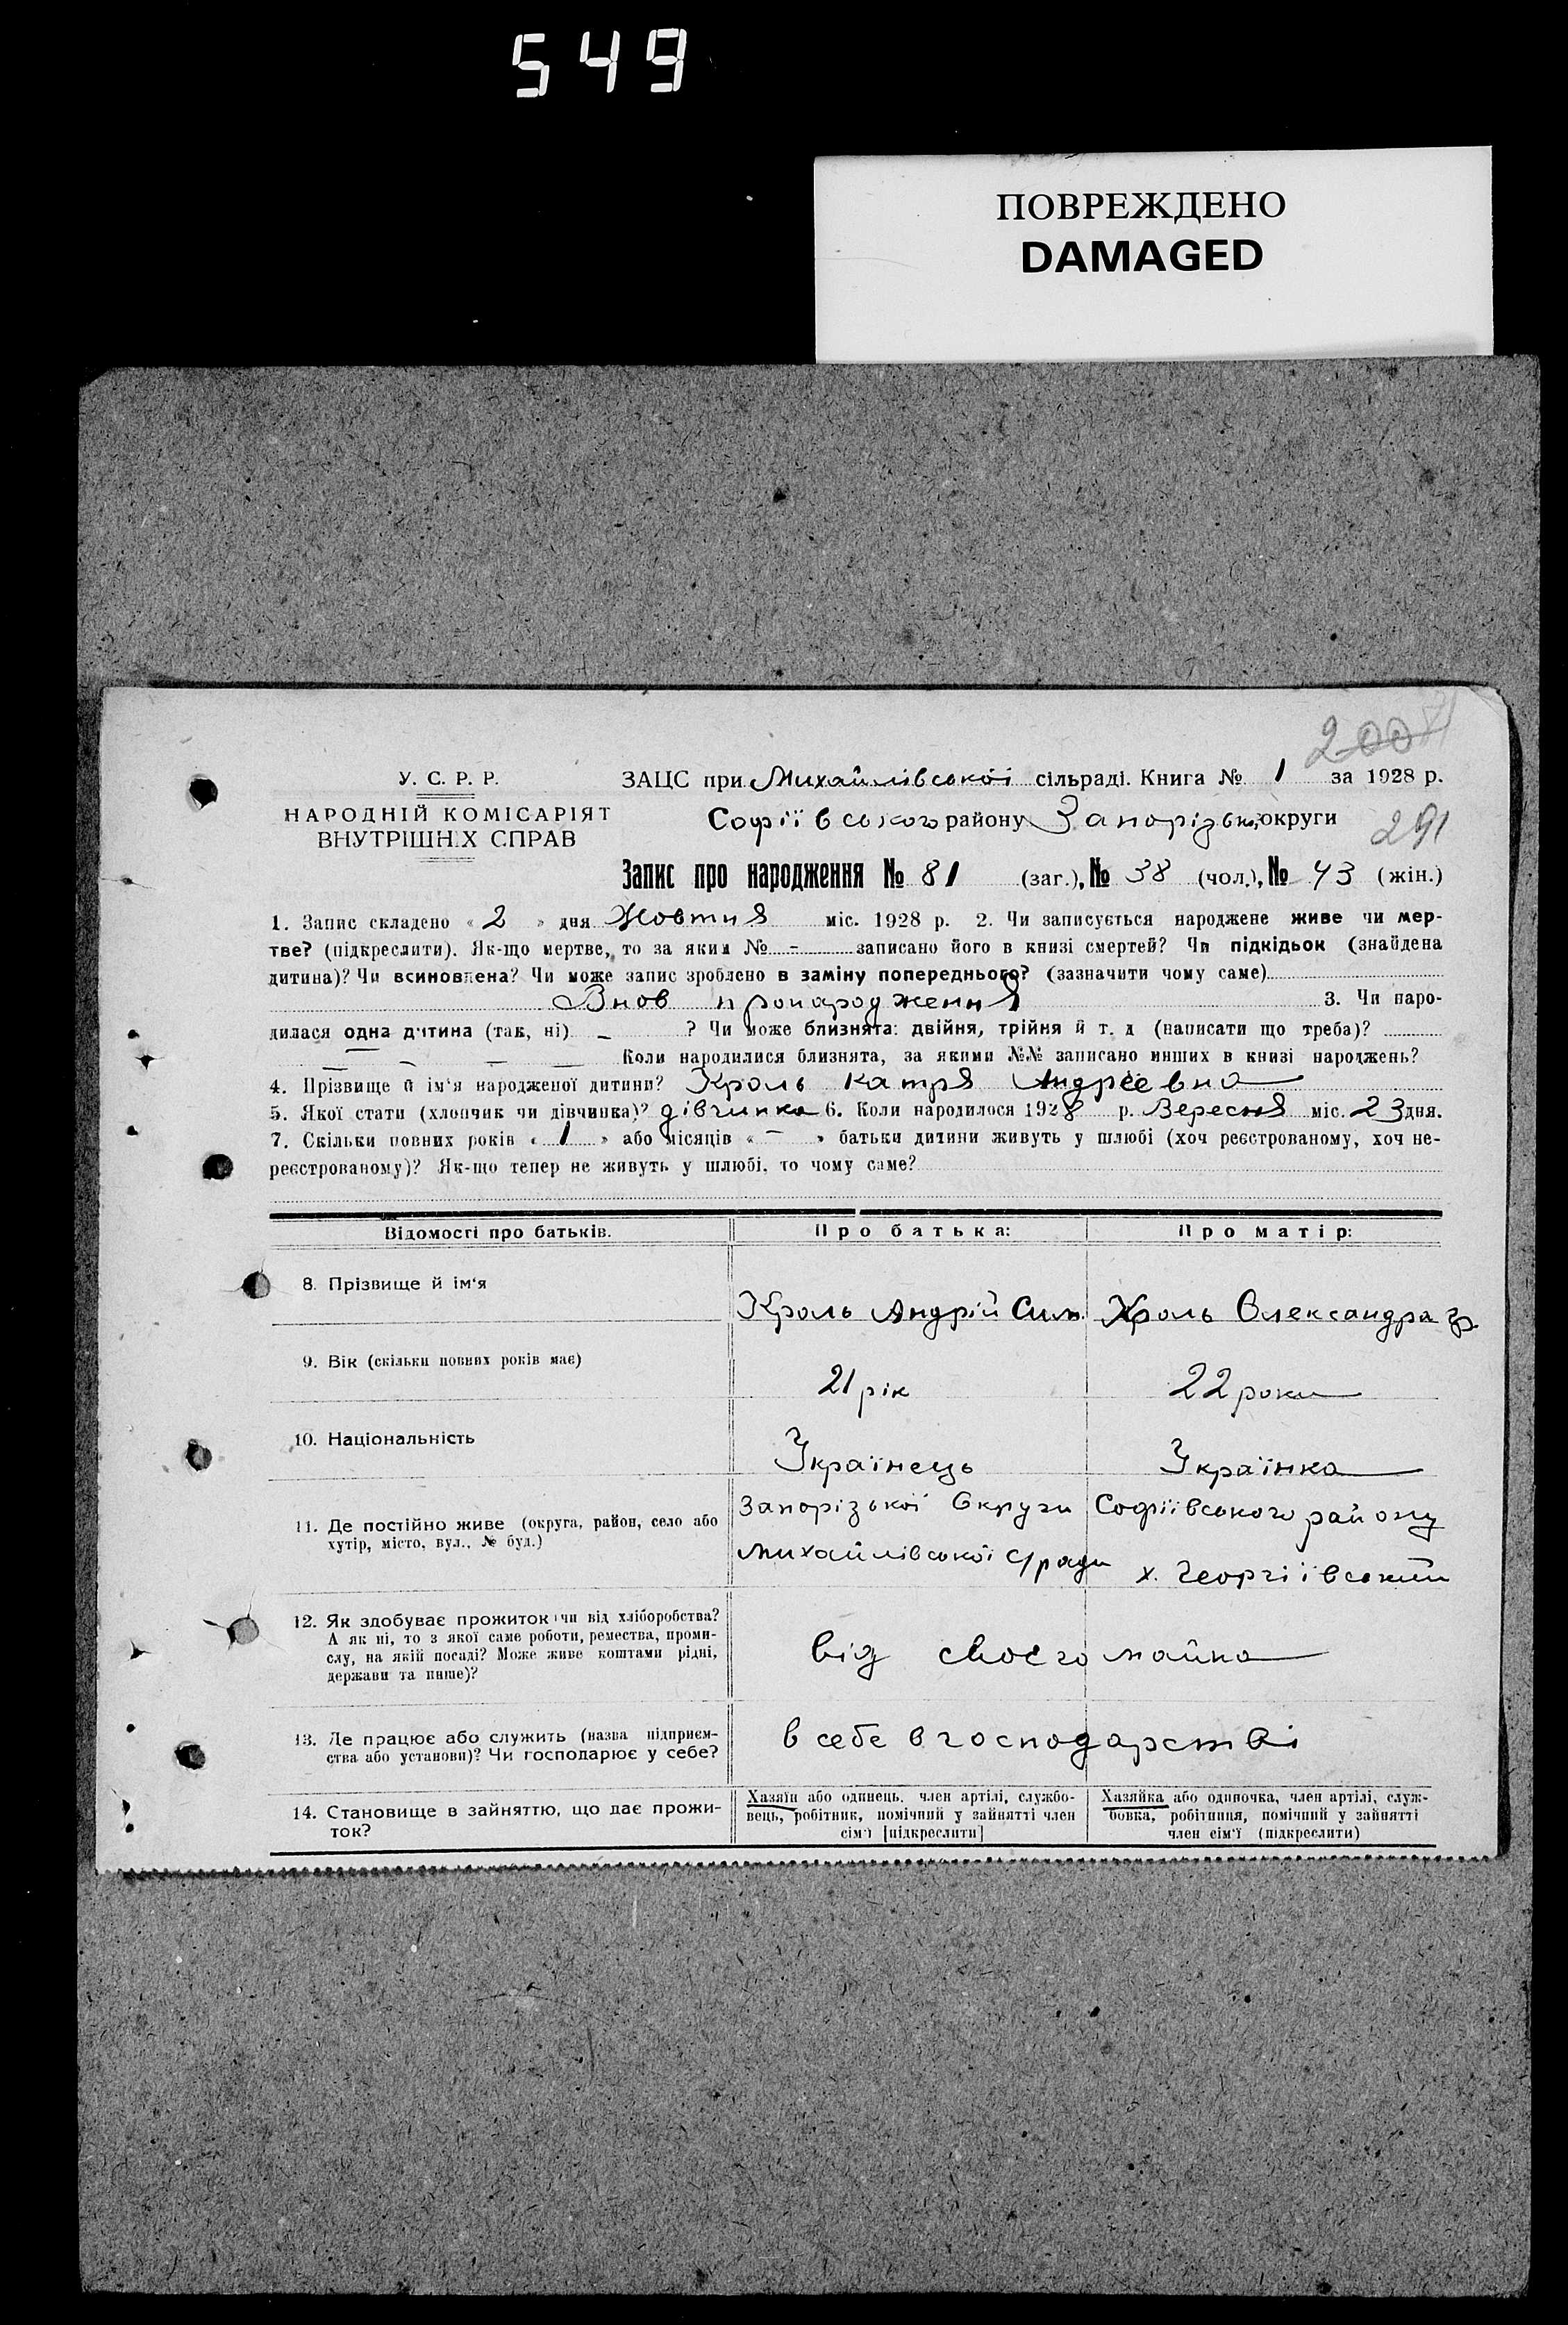 549
ПОВРЕЖДЕНО
DAMAGED
200
У. С. Р. Р.
НАРОДНІЙ КОМІСАРІЯТ
ВНУТРІШНІХ СПРАВ
ЗАЦС при Михайлівській сільраді. Книга № 1 за 1928 р.
Софіївського району Запорізьк. округи
291
Запис про народження № 81 (заг.), № 38 (чол.), № 43 (жін.)
1. Запис складено « 2 » дня Жовтня міс. 1928 р. 2. Чи записується народжене живе чи мер-
тве? (підкреслити). Як-що мертве, то за яким № - записано його в книзі смертей? Чи підкідьок (знайдена
дитина)? Чи всиновлена? Чи може запис зроблено в заміну попереднього? (зазначити чому саме)
Внов пронародження 3. Чи наро-
дилася одна дитина (так, ні) – ? Чи може близнята: двійня, трійня й т. д (написати що треба)?
– – – – Коли народилися близнята, за якими №№ записано инших в книзі народжень?
4. Прізвище й ім'я народженої дитини? Кроль Катря Андрєєвна
5. Якої стати (хлопчик чи дівчинка)? дівчинка 6. Коли народилося 1928 р. Вересня міс. 23 дня.
7. Скільки повних років « 1 » або місяців « – » батьки дитини живуть у шлюбі (хоч реєстрованому, хоч не-
реєстрованому)? Як-що тепер не живуть у шлюбі, то чому саме?
Відомості про батьків. Про батька: Про матір:
8. Прізвище й ім'я
Кроль Андрій Сим. Кроль Олександра Гр.
9. Вік (скільки повних років має)
21 рік 22 роки
10. Національність
Українець Українка
11. Де постійно живе (округа, район, село або
хутір, місто, вул., № буд.)
Запорізької Округи Софіївського району
Михайлівської с/ради х. Георгіївський
12. Як здобуває прожиток (чи від хліборобства?
А як ні, то з якої саме роботи, ремества, проми-
слу, на якій посаді? Може живе коштами рідні,
держави та инше)?
від своєго майна
13. Де працює або служить (назва підприєм-
ства або установи)? Чи господарює у себе?
в себе в господарстві
14. Становище в зайняттю, що дає прожи-
ток?
Хазяїн або одинець, член артілі, службо-
вець, робітник, помічний у зайнятті член
сім'ї [підкреслити]
Хазяйка або одиночка, член артілі, служ-
бовка, робітниця, помічний у зайнятті
член сім'ї (підкреслити)